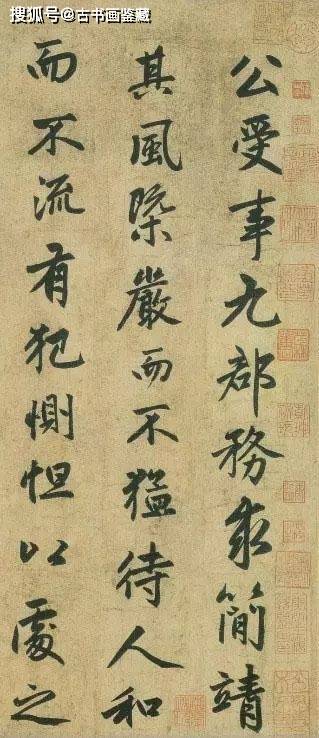 搜狐号@古书画鉴藏
公受事九郡務求簡靖
其風槩嚴而不猛待人和
而不流有犯惻怛以處之